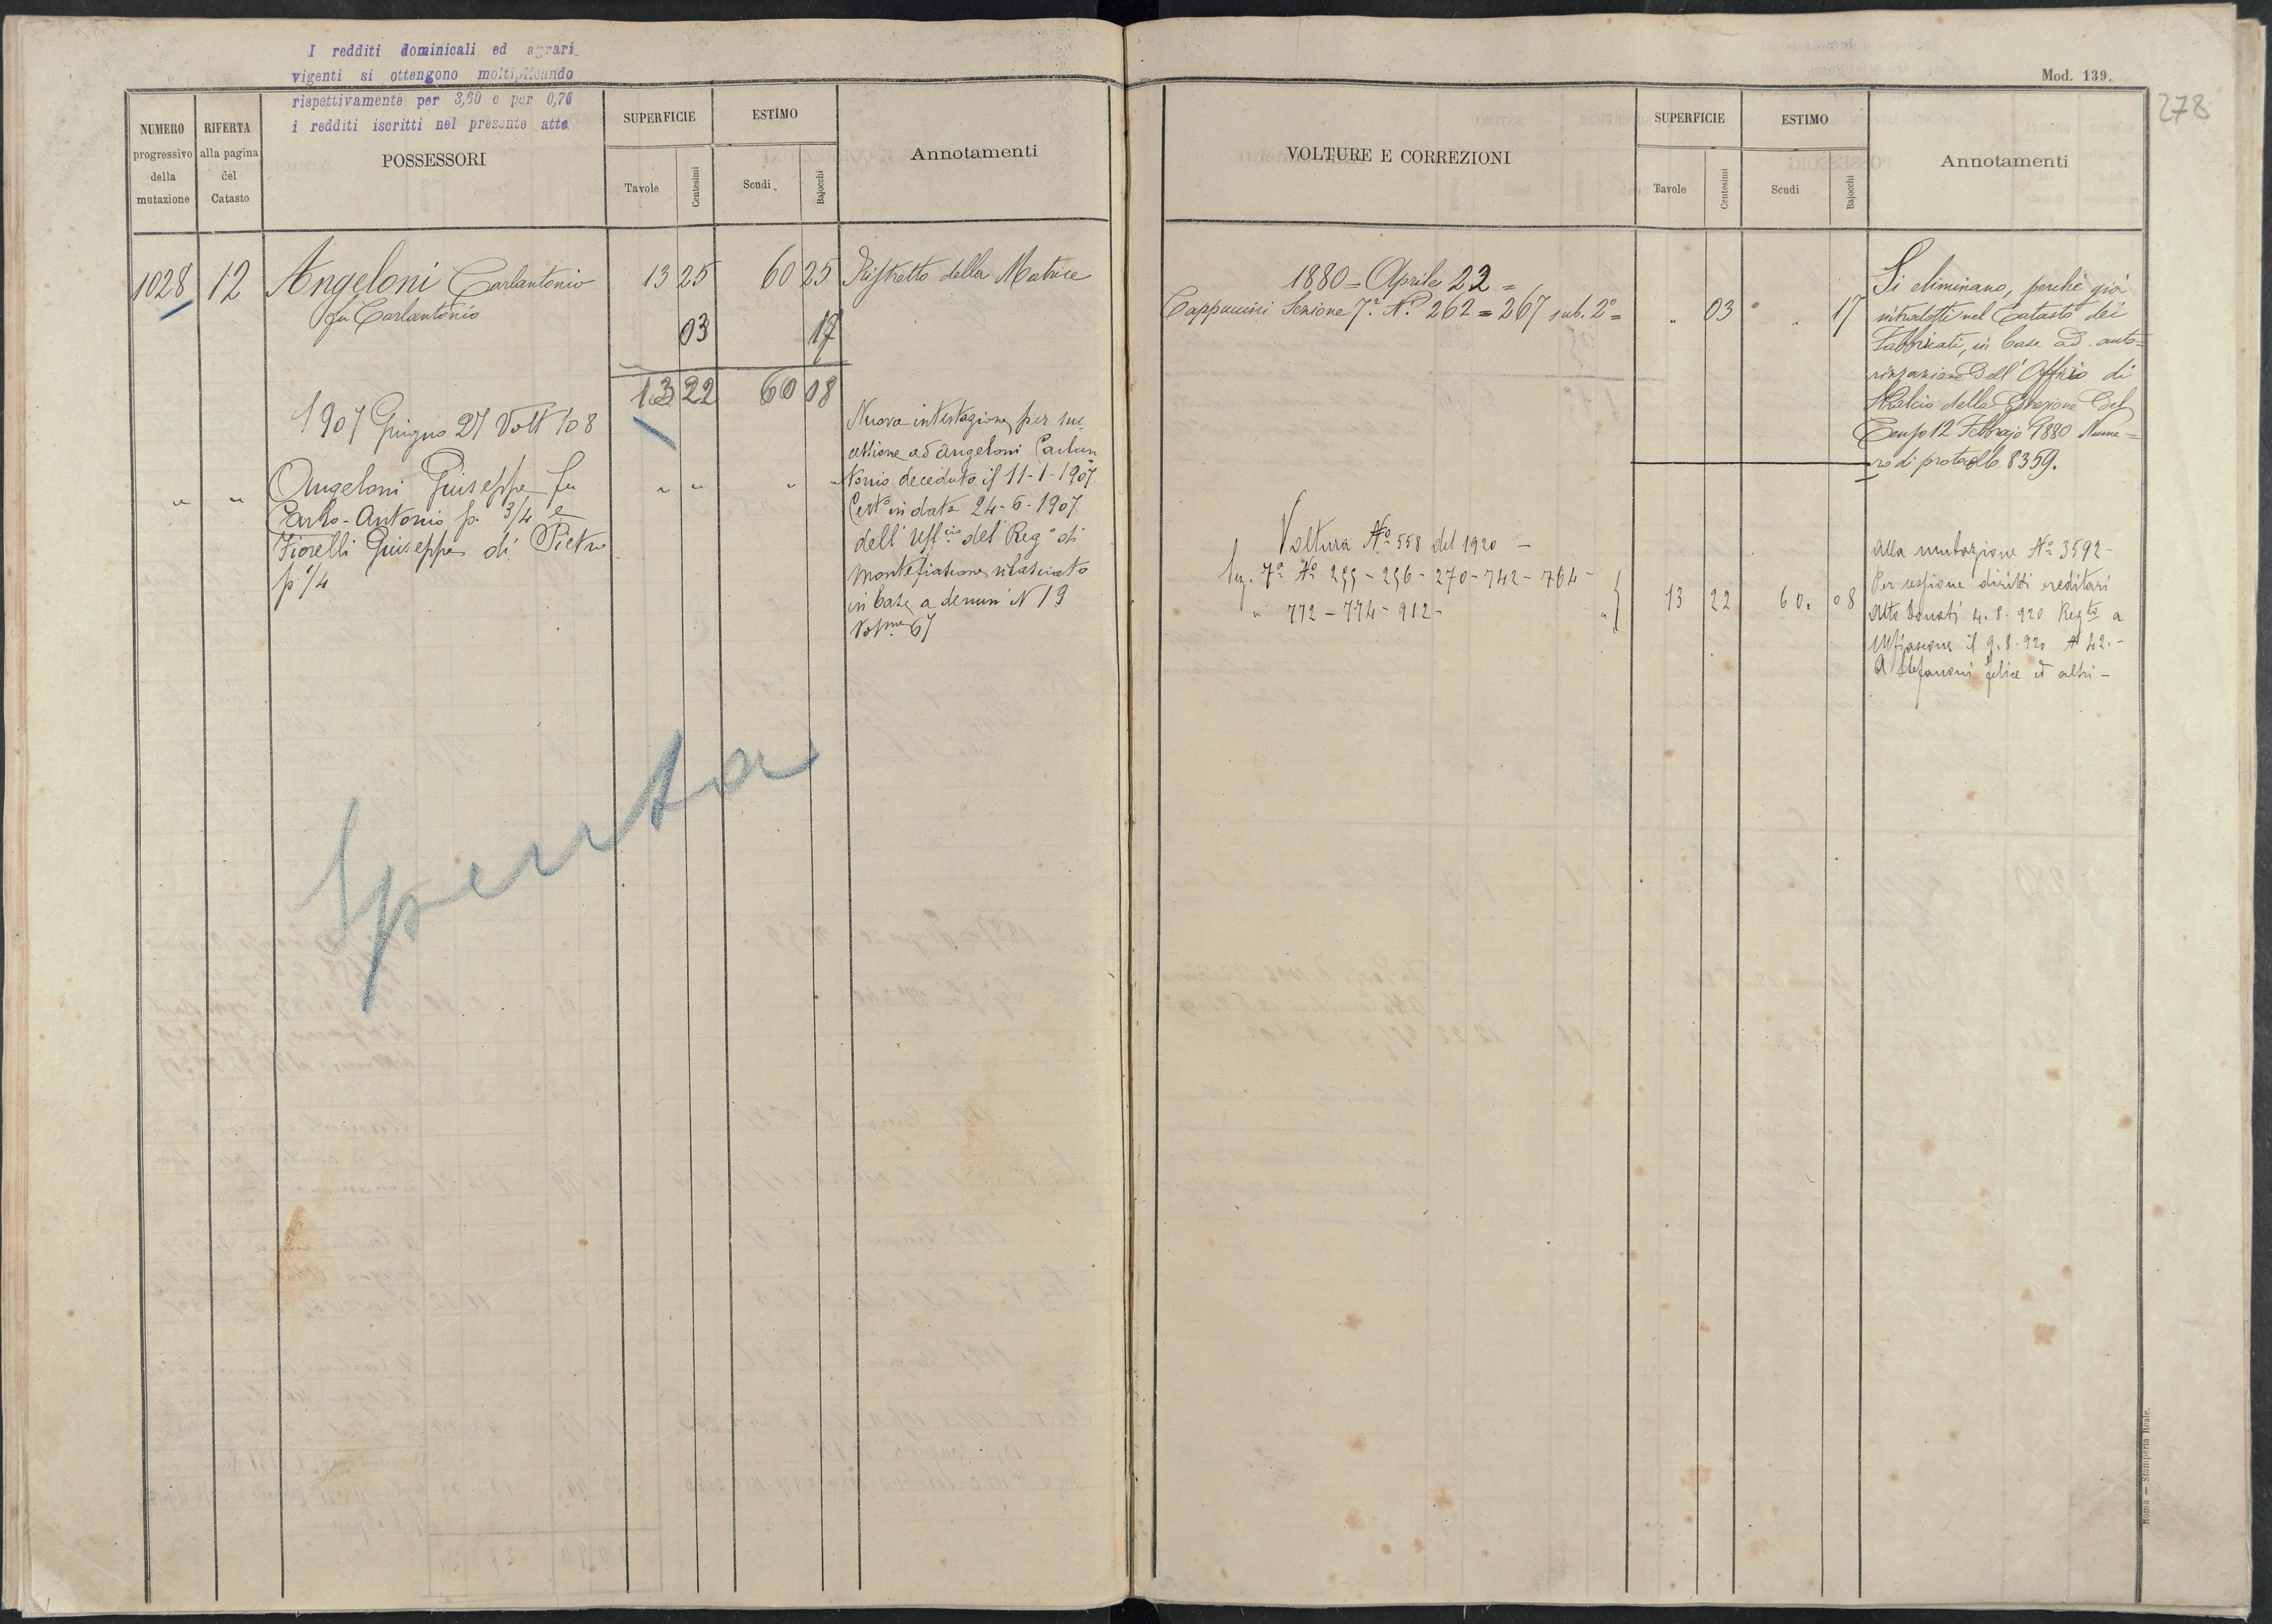 I redditi dominicali ed agrari
vigenti si ottengono moltiplicando
rispettivamente per 3,60 e per 0,76
i redditi iscritti nel presente atto.
NUMERO
progressivo
della
mutazione
RIFERTA
alla pagina
del
Catasto
POSSESSORI
SUPERFICIE
Tavole
Centesimi
ESTIMO
Scudi
Bajocchi
Annotamenti
1028 12 Angeloni Carlantonio 13 25 60 25 Ristretto della Matrice
fu Carlantonio
03 17
13 22 60 08
1907 Giugno 27 Volt 108
Angeloni Giuseppe fu
Carlo-Antonio p. 3/4 e
Fiorelli Giuseppe di Pietro
p. 1/4
" " " " " "
Nuova intestazione per suc
cessione ad Angeloni Carlan
tonio deceduto il 11-1-1907
Certo in data 24-6-1907
dell' Uffcio del Rego di
Montefiascone rilasciato
in base a denun N 19
Volme 67
Spenta
Mod. 139.
278
VOLTURE E CORREZIONI
SUPERFICIE
Tavole
Centesimi
ESTIMO
Scudi
Bajocchi
Annotamenti
1880 = Aprile 22 =
Cappuccini Sezione 7a No 262 = 267 sub. 2o = " 03 " 17
Si eliminano, perchè già
introdotti nel Catasto dei
Fabbricati, in base ad auto=
rizzazione dell' Officio di
Stralcio della Direzione del
Censo 12 Febbrajo 1880 Nume=
ro di protocollo 8359.
Voltura No 558 del 1920 -
Sez. 7a No 255 - 256 - 270 - 742 - 764 -
" 772 - 774 - 912 - " 13 22 60. 08
Alla mutazione No 3592 -
Per cessione diritti ereditari
Atto Donati 4.8.920 Regto a
Mfiascone il 9.8.920 No 42. -
A Stefanoni Felice ed altri -
Roma — Stamperia Reale.